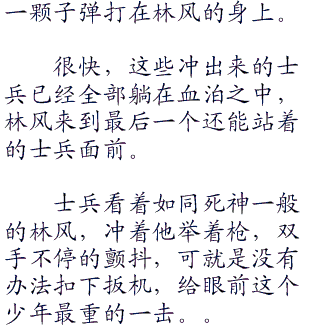 一颗子弹打在林风的身上。
很快，这些冲出来的士
兵已经全部躺在血泊之中，
林风来到最后一个还能站着
的士兵面前。
士兵看着如同死神一般
的林风，冲着他举着枪，双
手不停的颤抖，可就是没有
办法扣下扳机，给眼前这个
少年最重的一击。。